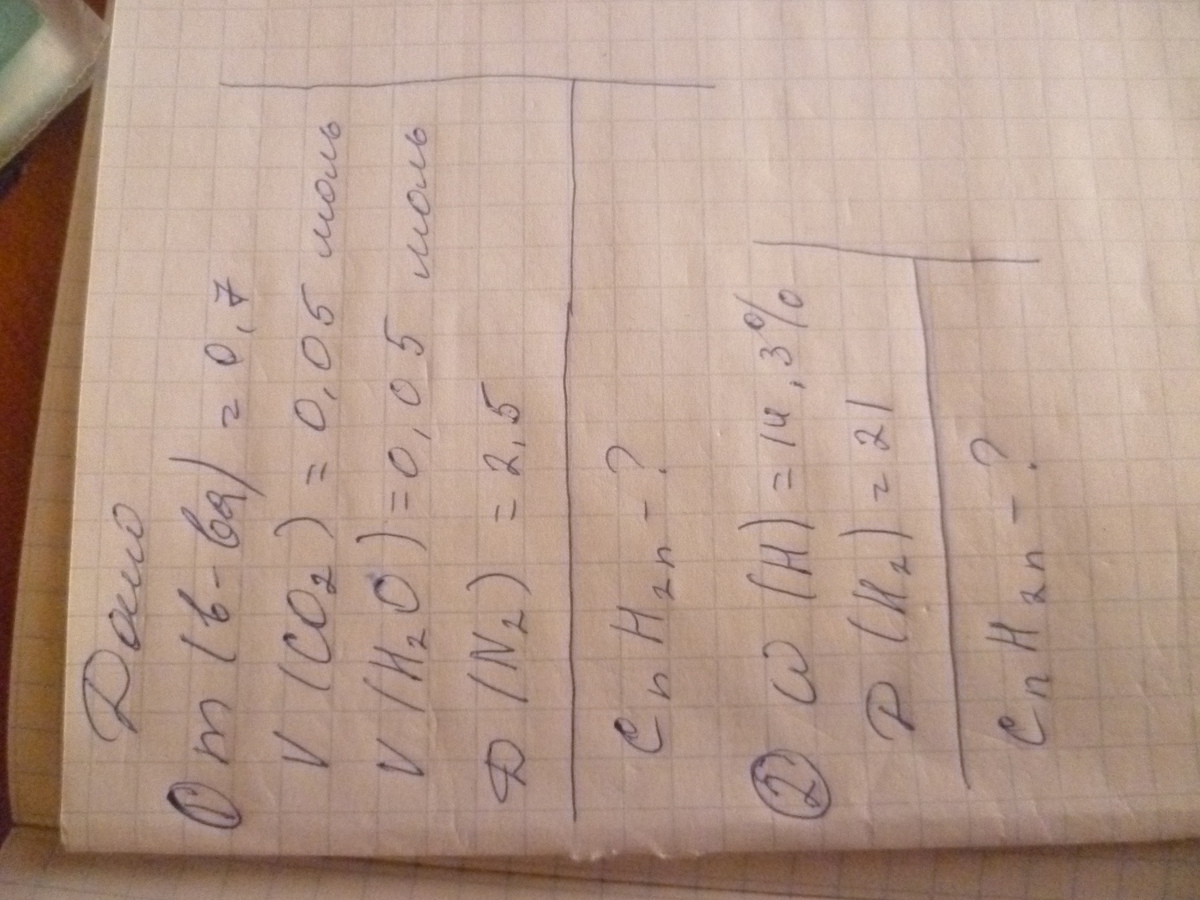 Дано
① m (в-ва) = 0,7
V (CO₂) = 0,05 моль
V (H₂O) = 0,05 моль
D (N₂) = 2,5
CnH₂n - ?
② ω (H) = 14,3%
D (H₂) = 21
CnH₂n - ?